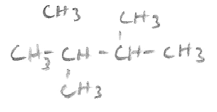 CH3
CH3
CH3-CH-CH-CH3
CH3